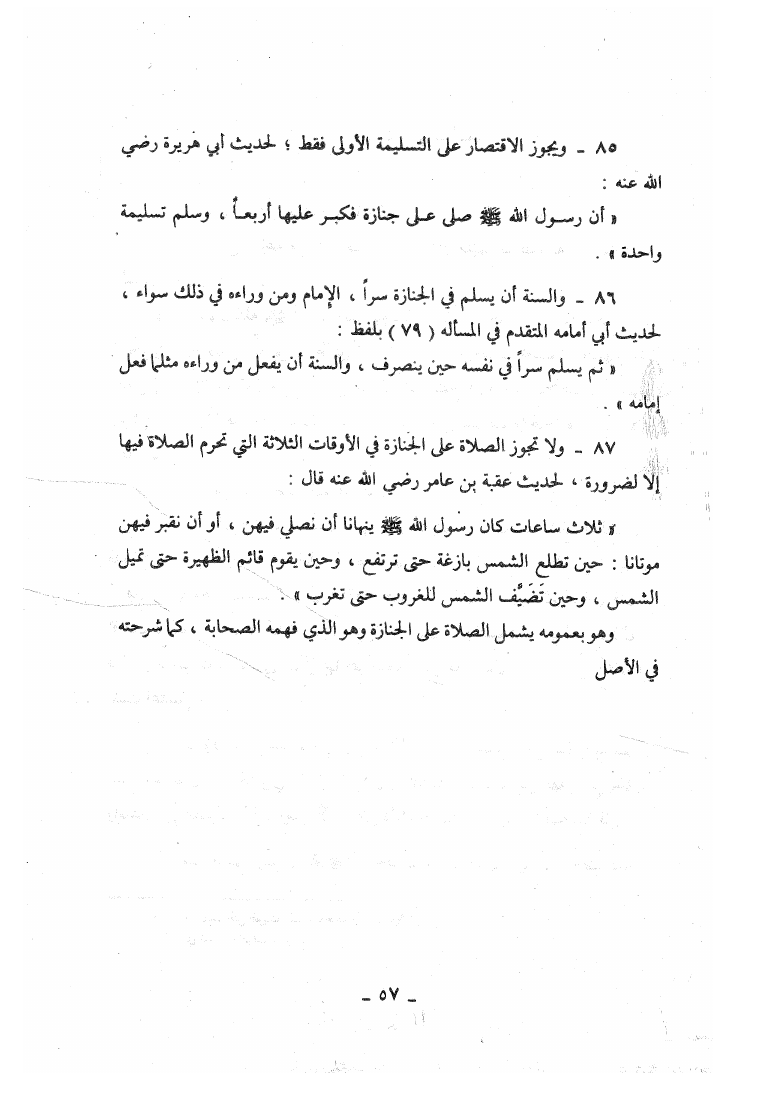 ٨٥ ـ ويجوز الاقتصار على التسليمة الأولى فقط ؛ لحديث أبي هريرة رضي
الله عنه :
« أن رسول الله ﷺ صلى على جنازة فكبر عليها أربعاً ، وسلم تسليمة
واحدة » .
٨٦ ـ والسنة أن يسلم في الجنازة سراً ، الإمام ومن وراءه في ذلك سواء ،
لحديث أبي أمامه المتقدم في المسأله ( ٧٩ ) بلفظ :
« ثم يسلم سراً في نفسه حين ينصرف ، والسنة أن يفعل من وراءه مثلما فعل
إمامه » .
٨٧ ـ ولا تجوز الصلاة على الجنازة في الأوقات الثلاثة التي تحرم الصلاة فيها
إلا لضرورة ، لحديث عقبة بن عامر رضي الله عنه قال :
« ثلاث ساعات كان رسول الله ﷺ ينهانا أن نصلي فيهن ، أو أن نقبر فيهن
موتانا : حين تطلع الشمس بازغة حتى ترتفع ، وحين يقوم قائم الظهيرة حتى تميل
الشمس ، وحين تَضَيَّف الشمس للغروب حتى تغرب » .
وهو بعمومه يشمل الصلاة على الجنازة وهو الذي فهمه الصحابة ، كما شرحته
في الأصل
ـ ٥٧ ـ